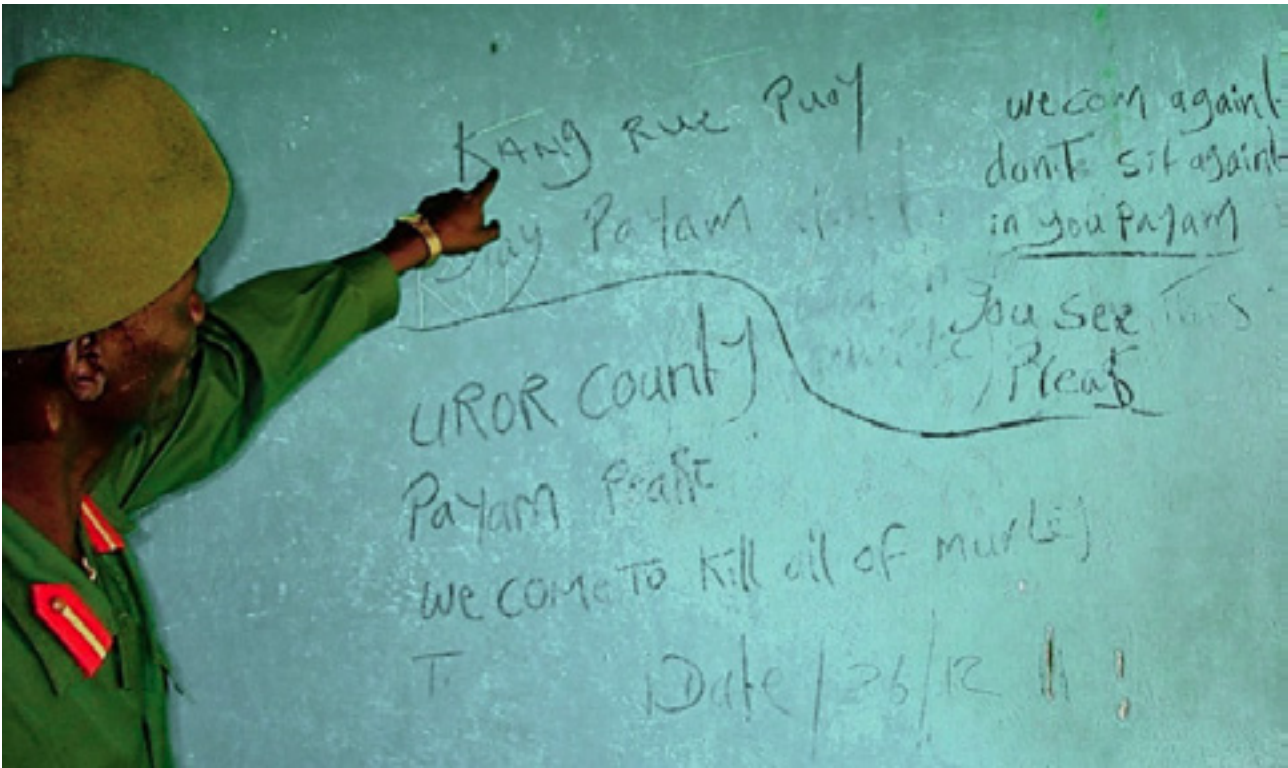 KANg RUE PUOY
Payam
UROR County
Payam
we come To Kill all of murLe
T.
Date / 26/12
we com againt
dont sit againt
in you Payam
You see This
Pleas